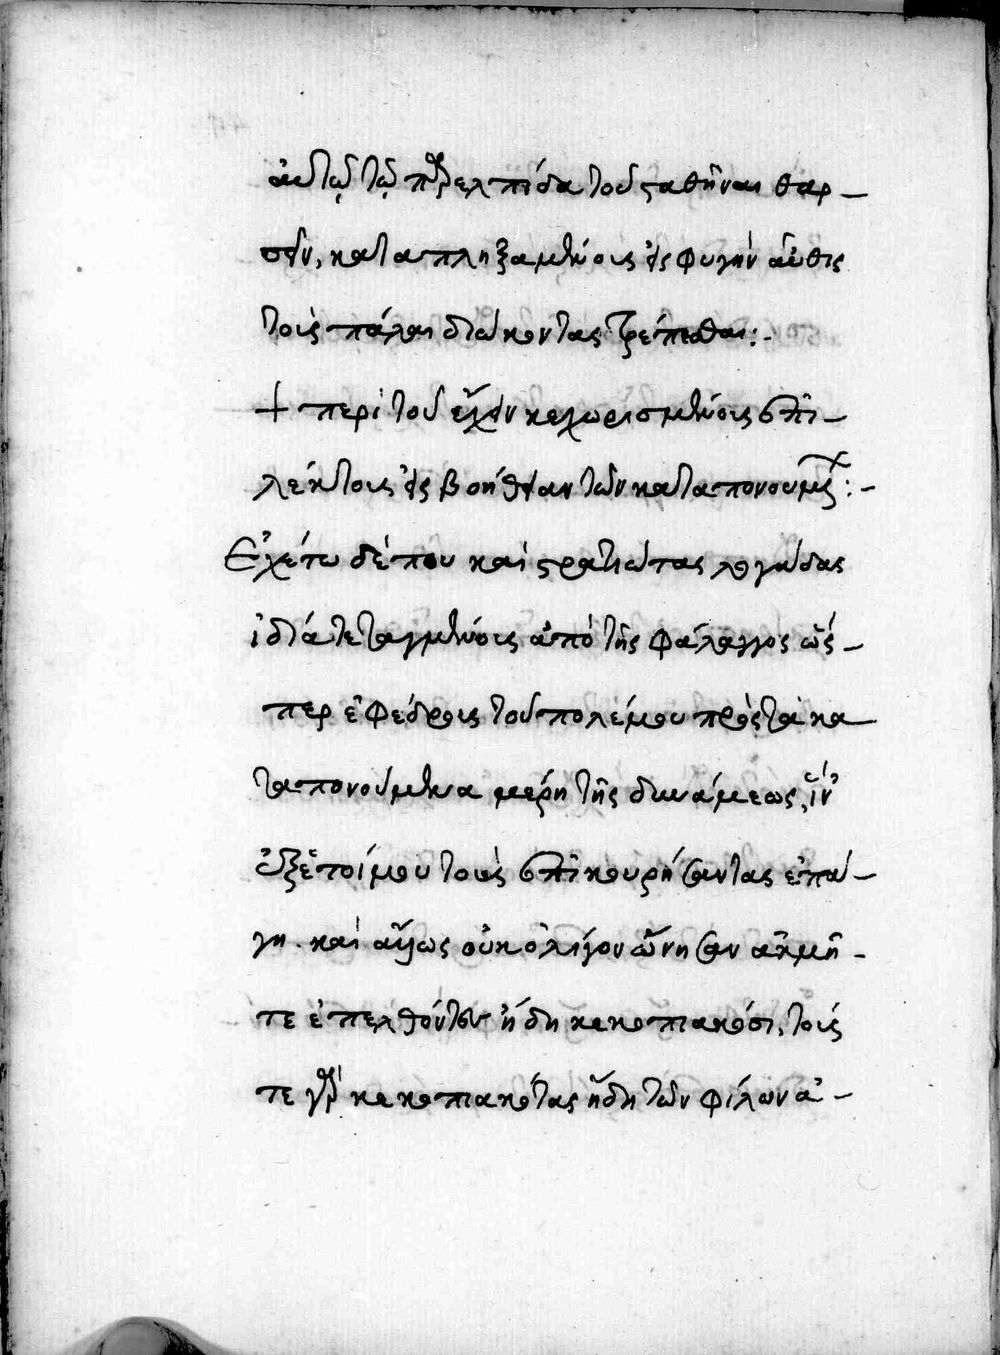 αὐτῷ τῷ παρ' ἐλπίδα τοὺς ἀθῆναι θαρ-
σεῖν, καταπληξαμένους εἰς φυγὴν αὖθις
τοὺς πάλαι διώκοντας τρέπεσθαι:-
+ περὶ τοῦ ἔχειν κεχωρισμένους ἐπι-
λέκτους εἰς βοήθειαν τῶν καταπονουμένων:-
Ἐχέτω δέ που καὶ στρατιώτας λογάδας
ἰδίᾳ τεταγμένους ἀπὸ τῆς φάλαγγος ὥσ-
περ ἐφέδρους τοῦ πολέμου πρὸς τὰ κα
ταπονούμενα μέρη τῆς δυνάμεως, ἵν'
ἐξ ἑτοίμου τοὺς ἐπικουρήσοντας ἐπά-
γη. καὶ ἄλλως οὐκ ὀλίγον ὤνησαν ἀκμῆ-
τε ἐπελθόντες ἤδη κεκοπιακόσι, τούς
τε γὰρ κεκοπιακότας ἤδη τῶν φίλων ἀ-